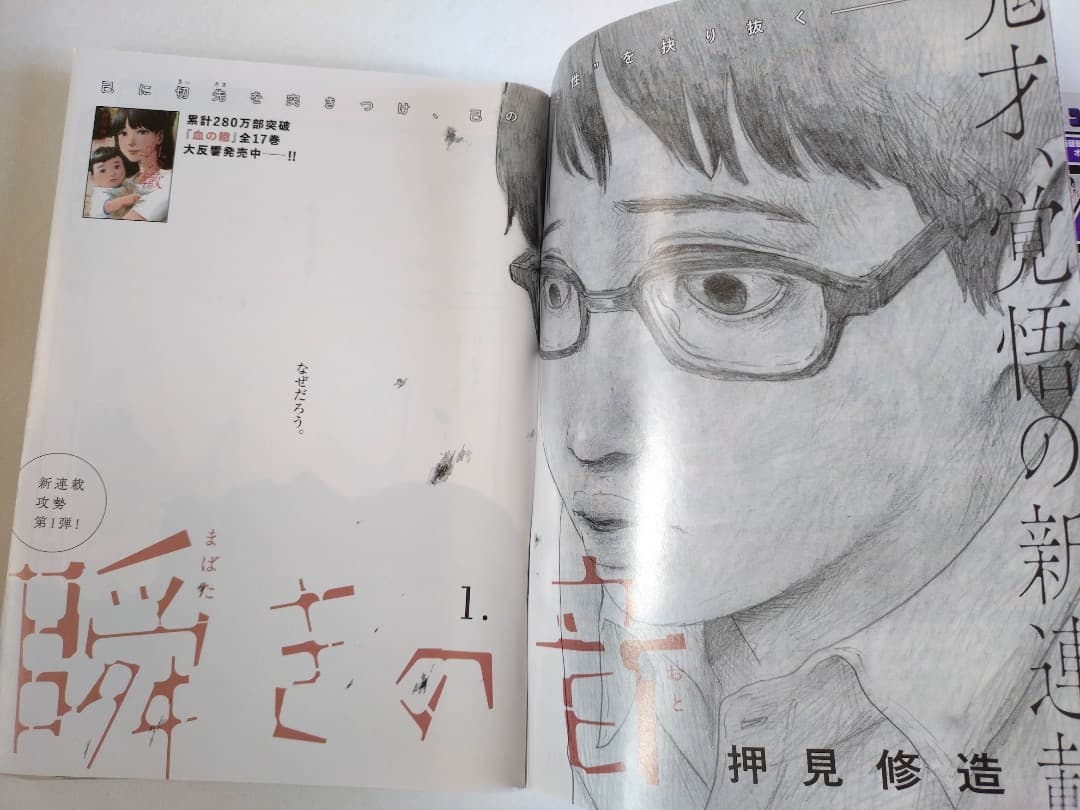 己に切先を突きつけ、己の
きっさき
"性"を抉り抜く――
鬼才、覚悟の新連載
累計280万部突破
『血の轍』全17巻
大反響発売中――!!
なぜだろう。
新連載
攻勢
第1弾!
瞬きの音
まばた
おと
1.
押見修造